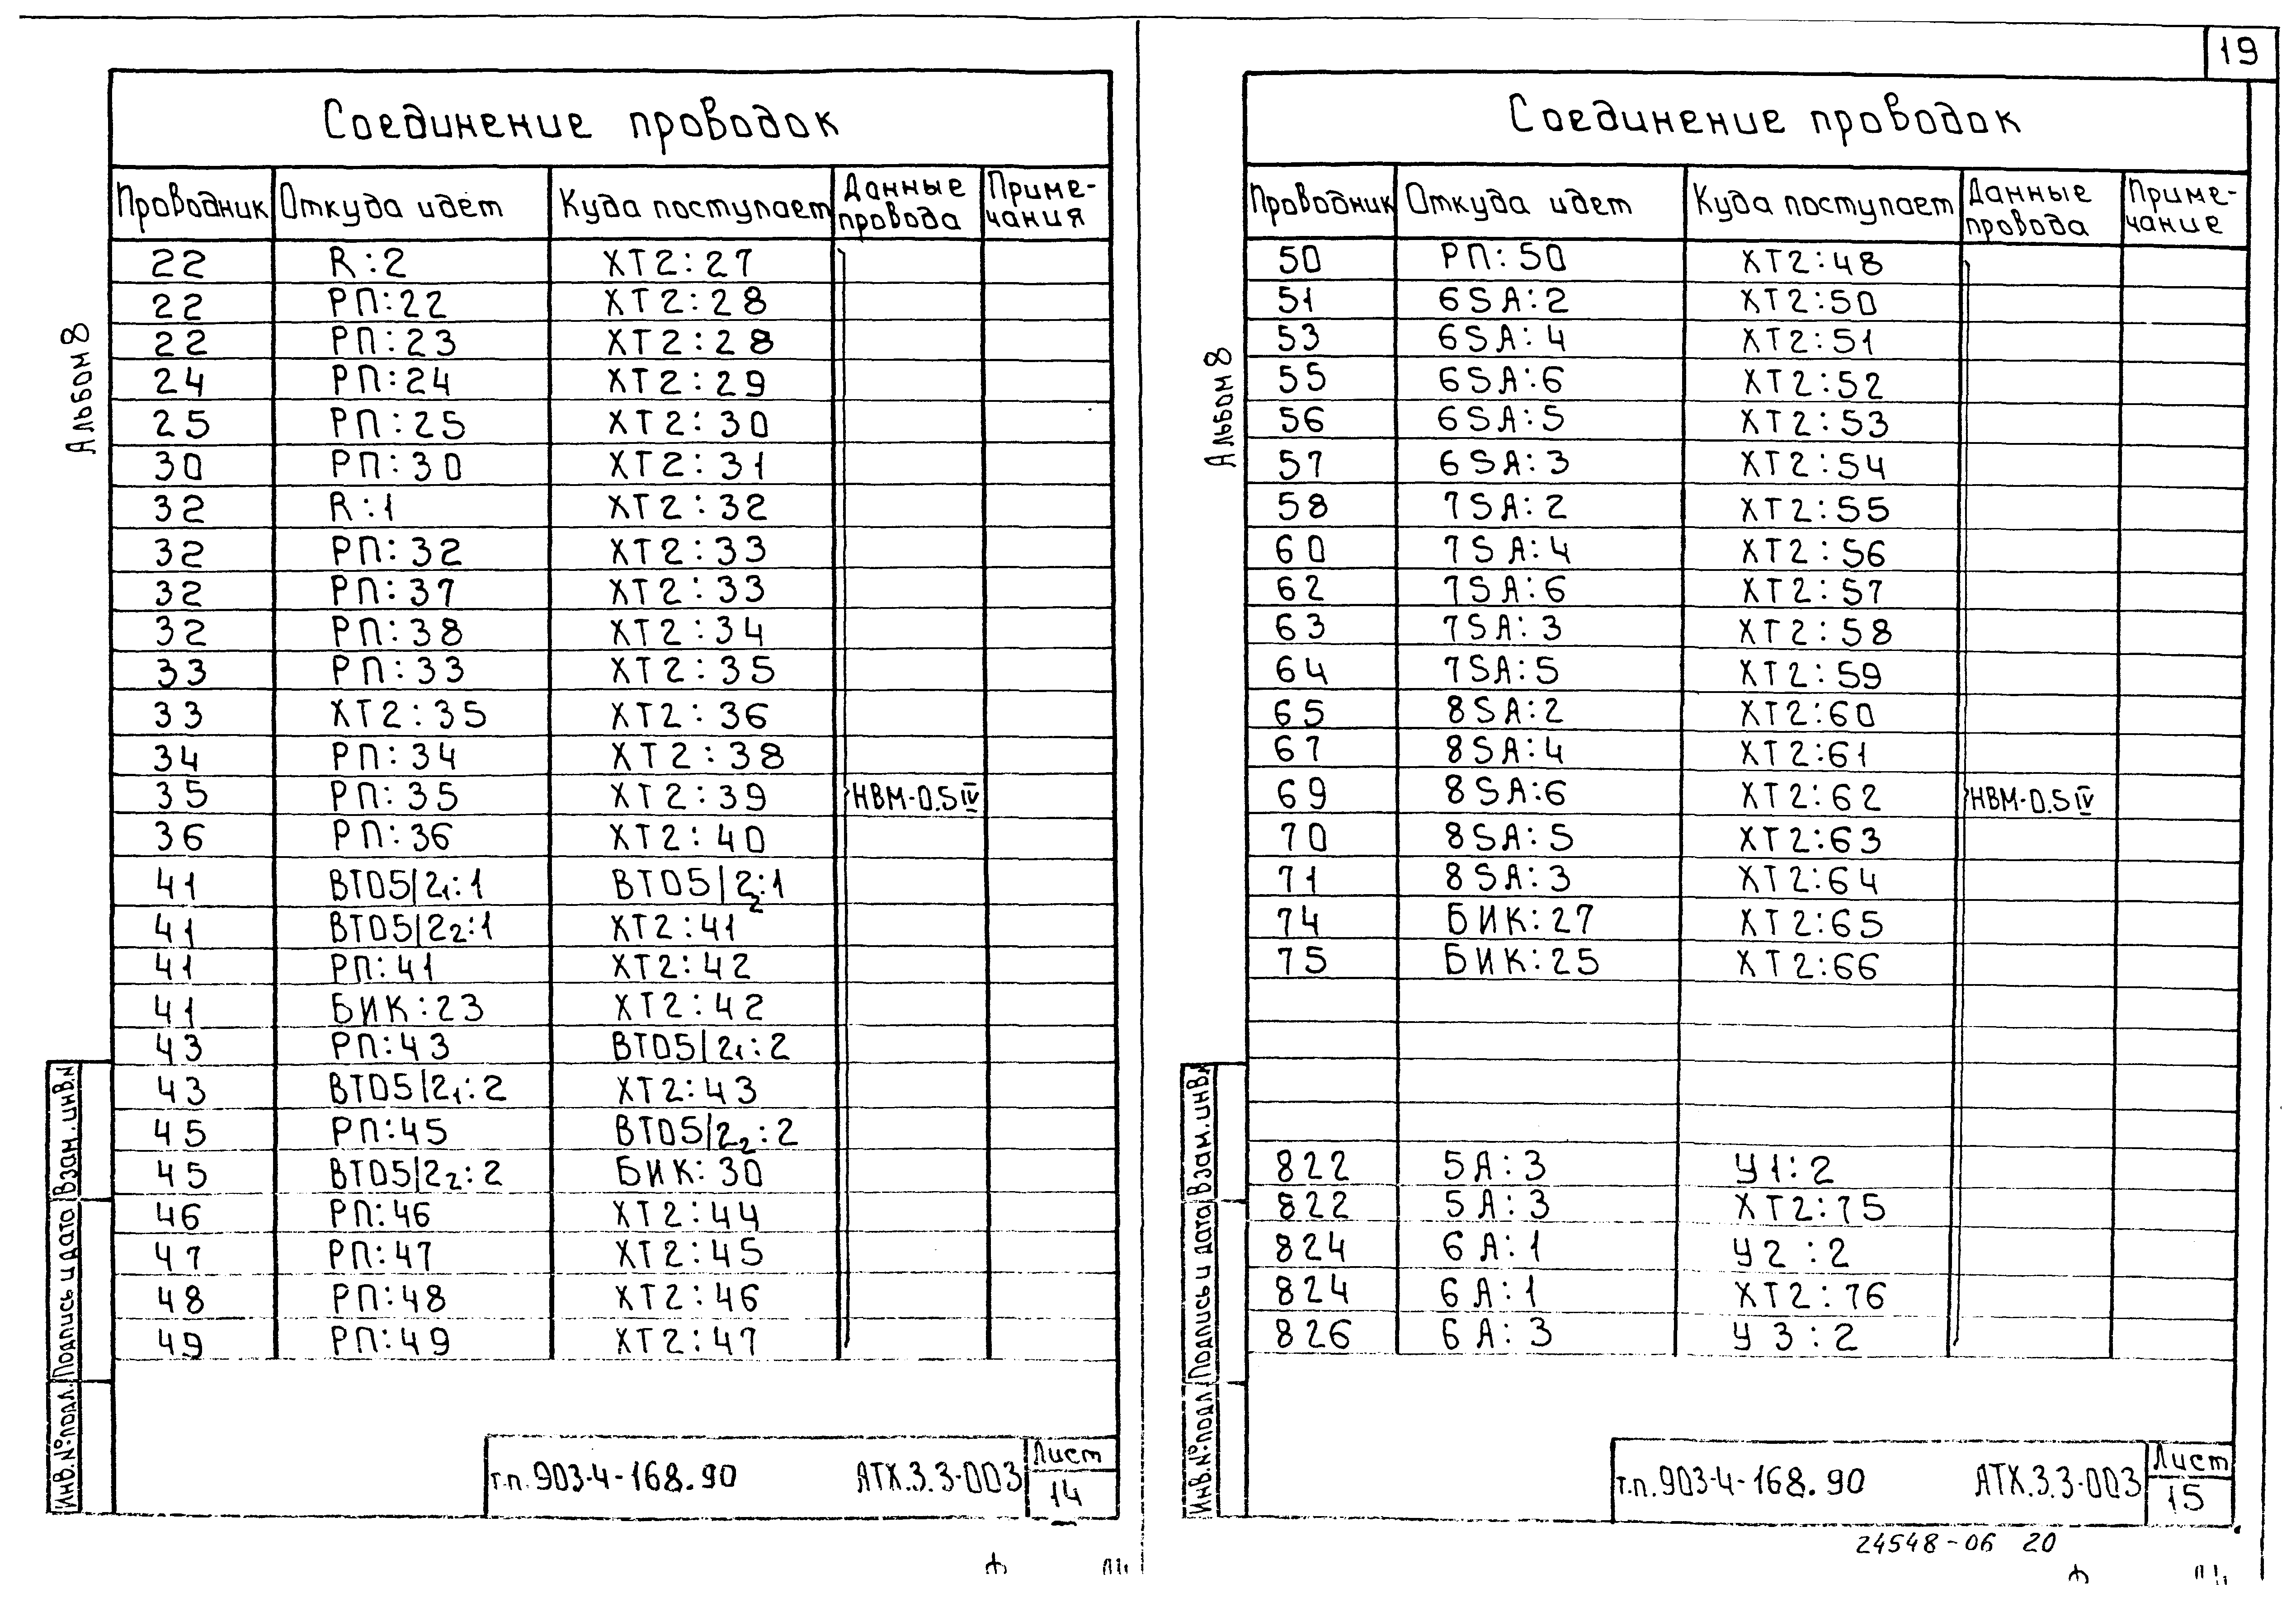 19
Альбом 8
Соединение проводок
Проводник Откуда идет Куда поступает Данные провода Приме-чания
22 R:2 ХТ2:27
22 РП:22 ХТ2:28
22 РП:23 ХТ2:28
24 РП:24 ХТ2:29
25 РП:25 ХТ2:30
30 РП:30 ХТ2:31
32 R:1 ХТ2:32
32 РП:32 ХТ2:33
32 РП:37 ХТ2:33
32 РП:38 ХТ2:34
33 РП:33 ХТ2:35
33 ХТ2:35 ХТ2:36
34 РП:34 ХТ2:38
35 РП:35 ХТ2:39 НВМ-0.5 IV
36 РП:36 ХТ2:40
41 ВТ05/2₁:1 ВТ05/2₂:1
41 ВТ05/2₂:1 ХТ2:41
41 РП:41 ХТ2:42
41 БИК:23 ХТ2:42
43 РП:43 ВТ05/2₁:2
43 ВТ05/2₁:2 ХТ2:43
45 РП:45 ВТ05/2₂:2
45 ВТ05/2₂:2 БИК:30
46 РП:46 ХТ2:44
47 РП:47 ХТ2:45
48 РП:48 ХТ2:46
49 РП:49 ХТ2:47
Инв.№подл. Подпись и дата Взам.инв.№
т.п.903-4-168.90 АТХ.3.3-003 Лист 14
Альбом 8
Соединение проводок
Проводник Откуда идет Куда поступает Данные провода Приме-чание
50 РП:50 ХТ2:48
51 6SA:2 ХТ2:50
53 6SA:4 ХТ2:51
55 6SA:6 ХТ2:52
56 6SA:5 ХТ2:53
57 6SA:3 ХТ2:54
58 7SA:2 ХТ2:55
60 7SA:4 ХТ2:56
62 7SA:6 ХТ2:57
63 7SA:3 ХТ2:58
64 7SA:5 ХТ2:59
65 8SA:2 ХТ2:60
67 8SA:4 ХТ2:61
69 8SA:6 ХТ2:62 НВМ-0.5 IV
70 8SA:5 ХТ2:63
71 8SA:3 ХТ2:64
74 БИК:27 ХТ2:65
75 БИК:25 ХТ2:66
822 5А:3 У1:2
822 5А:3 ХТ2:75
824 6А:1 У2:2
824 6А:1 ХТ2:76
826 6А:3 У3:2
Инв.№подл. Подпись и дата Взам.инв.№
т.п.903-4-168.90 АТХ.3.3-003 Лист 15
24548-06 20